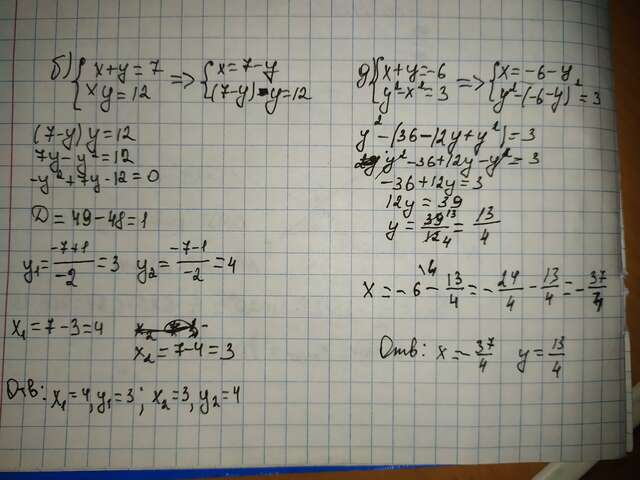 б) { x+y=7 => { x=7-y
xy=12 (7-y)·y=12
(7-y)y=12
7y-y²=12
-y²+7y-12=0
D=49-48=1
y₁=(-7+1)/(-2)=3 y₂=(-7-1)/(-2)=4
x₁=7-3=4
x₂=7-4=3
Отв: x₁=4, y₁=3; x₂=3, y₂=4
д) { x+y=-6 => { x=-6-y
y²-x²=3 y²-(-6-y)²=3
y²-(36-12y+y²)=3
y²-36+12y-y²=3
-36+12y=3
12y=39
y=39/12=13/4
x=-6-13/4=-24/4-13/4=-37/4
Отв: x=-37/4 y=13/4